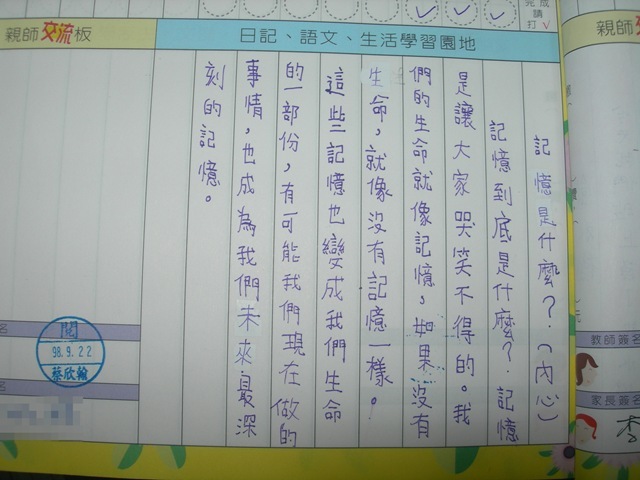 完成
請
打✓
親師交流板
日記、語文、生活學習園地
親師
記憶是什麼？（內心）
記憶到底是什麼？記憶
是讓大家哭笑不得的。我
們的生命就像記憶，如果沒有
生命，就像沒有記憶一樣。
這些記憶也變成我們生命
的一部份，有可能我們現在做的
事情，也成為我們未來最深
刻的記憶。
名
閱
98.9.22
蔡欣翰
名
教師簽名
家長簽名
李